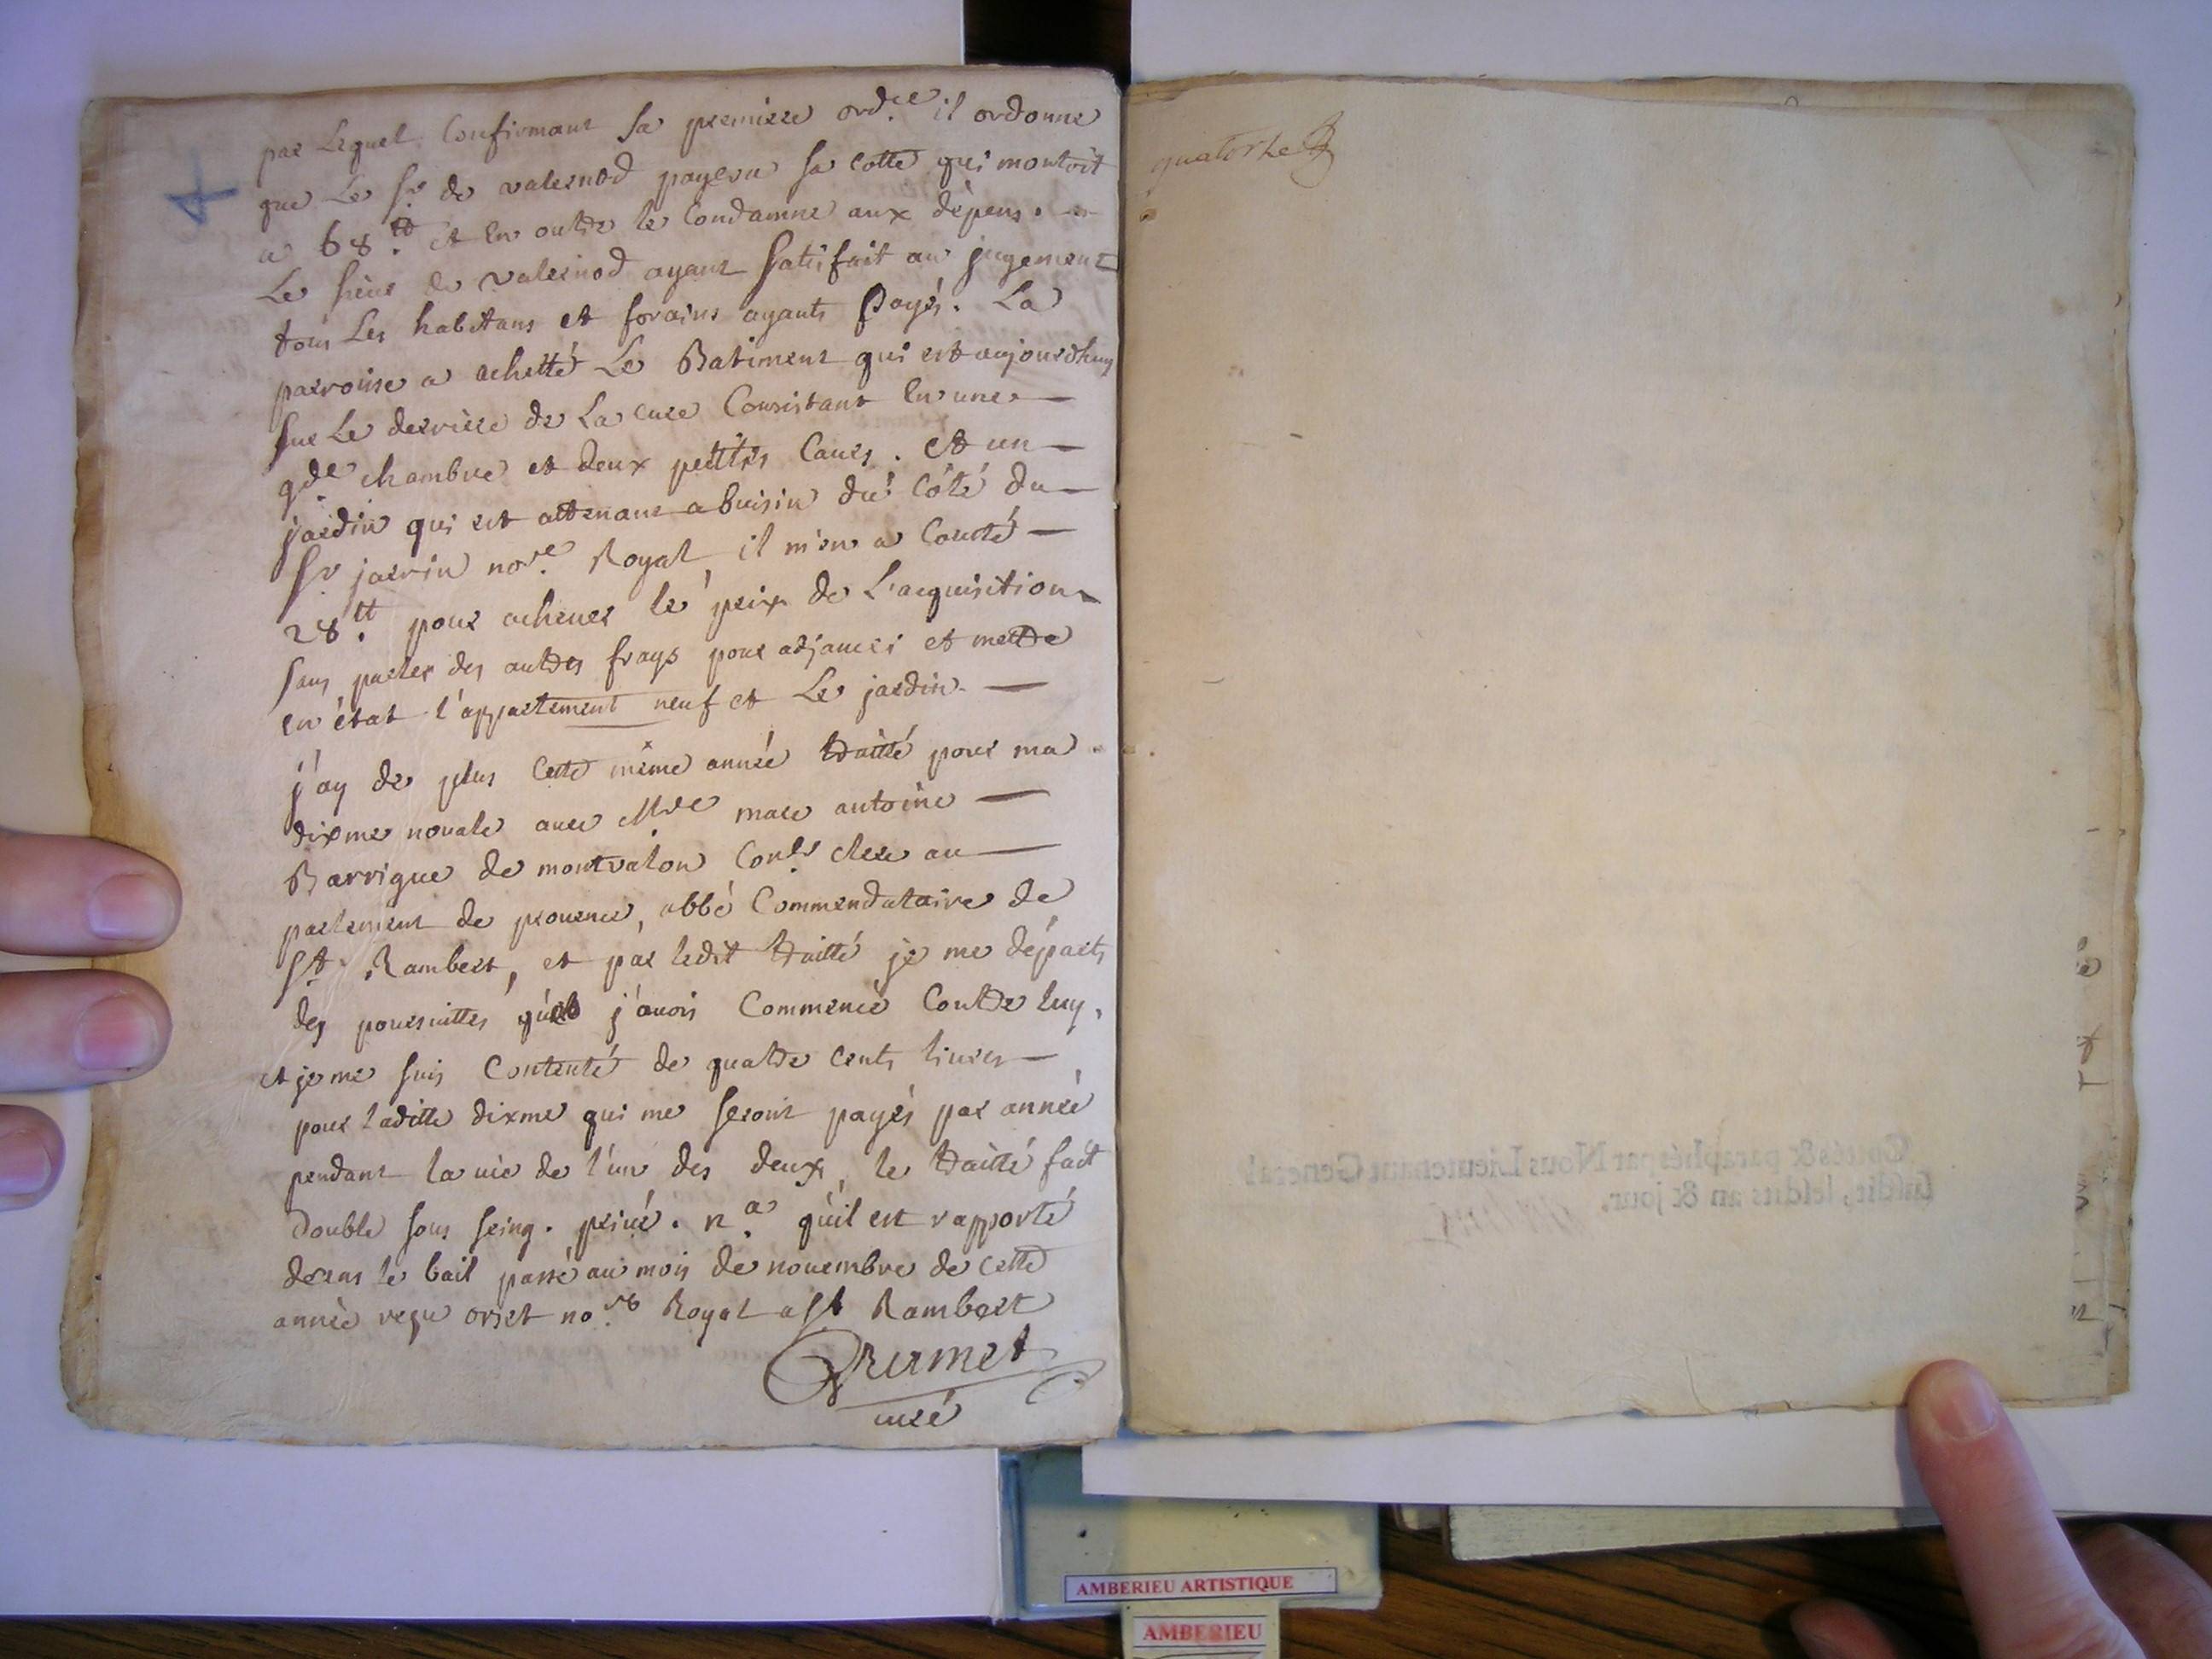 par Lequel Confirmant sa premiere ord.ce il ordonne
que Le sr de valernod payera sa cotte qui montoit
a 68.tt et en outre le Condamne aux dépens.
Le sieur de valernod ayant satisfait au jugement
tous Les habitans et forains ayants payés. La
parroisse a achetté Le Batiment qui est aujourdhuy
sur Le derriere de La cure Consistant en une
gde chambre et deux petites Caves. et un
jardin qui est attenant a buisin du côté du
sr jarrin nore. Royal, il m'en a Couté
28.tt pour achever le prix de L'acquisition
sans parler des autres frays pour adjancer et mettre
en état l'appartement neuf et Le jardin.
j'ay de plus Cette même année traitté pour ma
dixme novale avec Mre marc antoine
Barrigue de montvalon Conlr clerc au
parlement de provence, abbé Commendataire de
st. Rambert, et par ledit traitté je me départs
des poursuittes que j'avois Commencé Contre luy,
et je me suis Contenté de quatre cents livres
pour laditte dixme qui me seront payés par année
pendant la vie de l'un des deux, le traitté fait
double sous seing. privé. na. qu'il est rapporté
dans le bail passé au mois de novembre de cette
année reçu orset nore. Royal a st Rambert
curé
quatorze
Cotés & paraphés par Nous Lieutenant General
susdit, lesdits an & jour.
AMBERIEU ARTISTIQUE
AMBERIEU